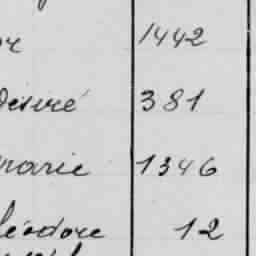 or 1442
Désiré 381
marie 1346
léodore 12